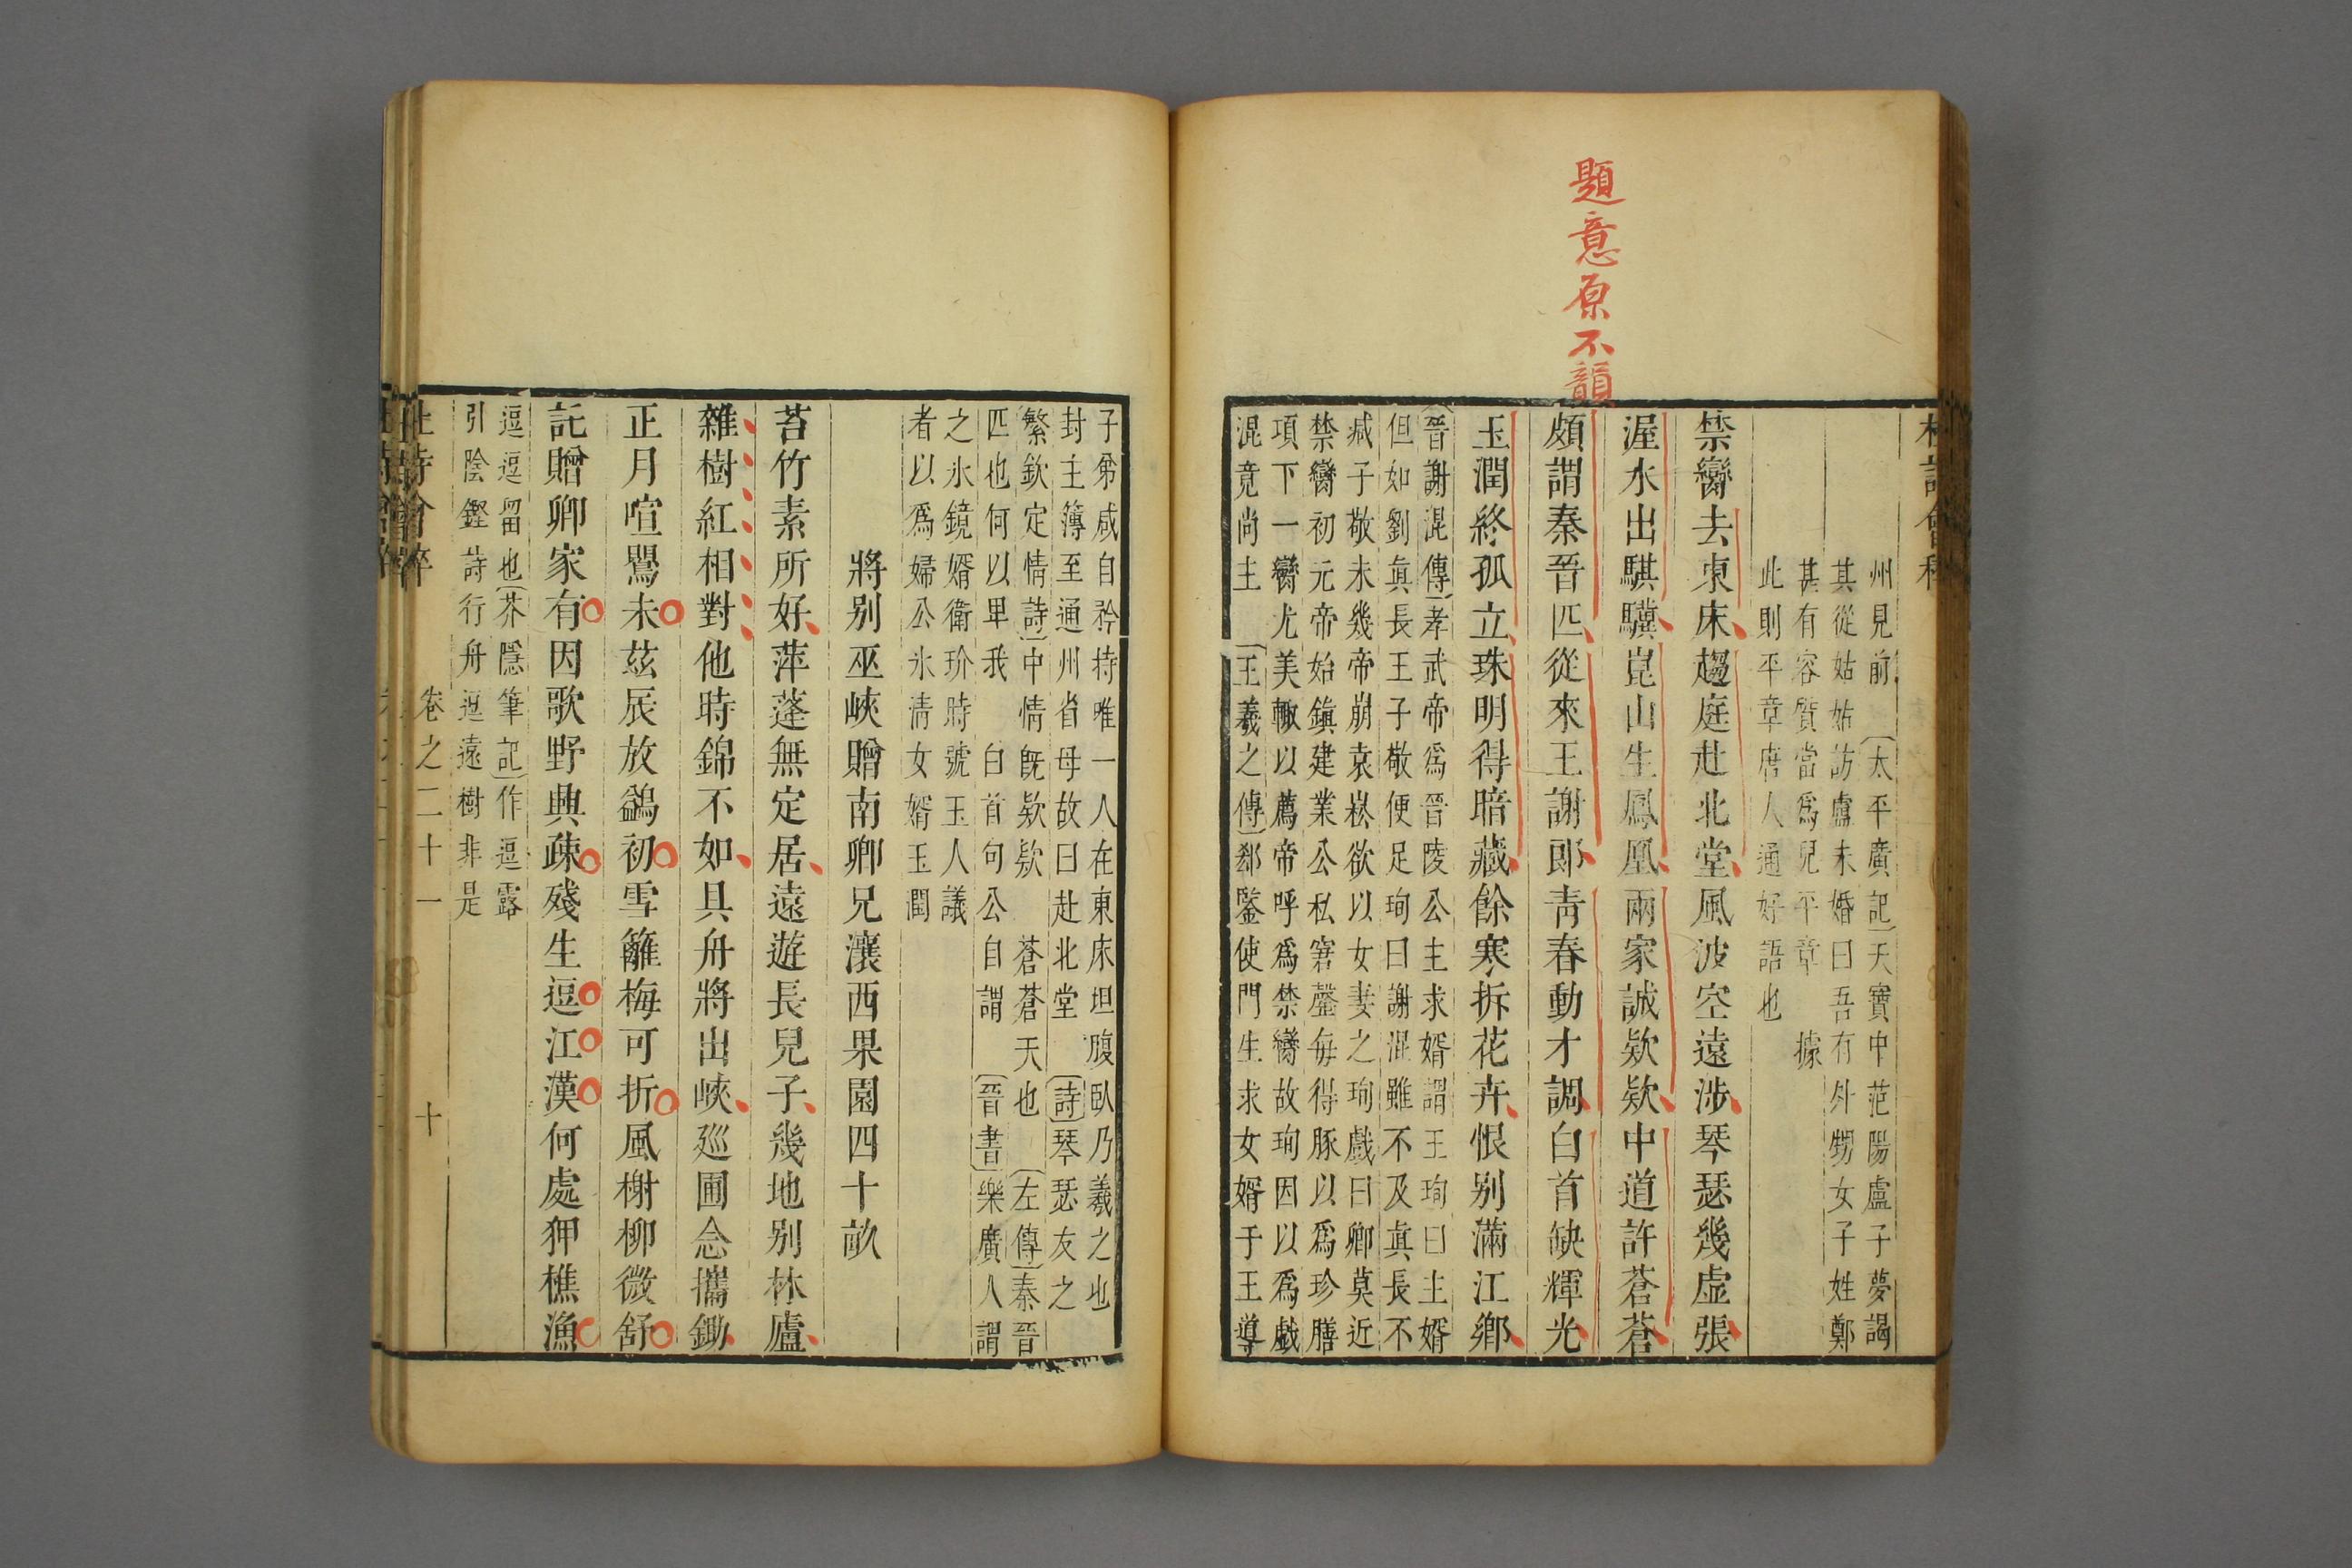 題意原不韻
州見前 〔太平廣記〕天寶中范陽盧子夢謁
其從姑姑訪盧未婚曰吾有外甥女子姓鄭
甚有容質當爲兒平章 據
此則平章唐人通好語也
禁臠去東床趨庭赴北堂風波空遠涉琴瑟幾虛張
渥水出騏驥崑山生鳳凰兩家誠欵欵中道許蒼蒼
頗謂秦晉匹從來王謝郎青春動才調白首缺輝光
玉潤終孤立珠明得暗藏餘寒拆花卉恨別滿江鄉
〔晉謝混傳〕孝武帝爲晉陵公主求婿謂王珣曰主婿
但如劉真長王子敬便足珣曰謝混雖不及真長不
减子敬未幾帝崩袁崧欲以女妻之珣戲曰卿莫近
禁臠初元帝始鎮建業公私窘罄每得豚以爲珍膳
項下一臠尤美輙以薦帝呼爲禁臠故珣因以爲戲
混竟尚主 〔王羲之傳〕郄鑒使門生求女婿于王導
子弟咸自矜持唯一人在東床坦腹臥乃羲之也
封主簿至通州省母故曰赴北堂 〔詩〕琴瑟友之
繁欽定情詩〕中情既欵欵 蒼蒼天也 〔左傳〕秦晉
匹也何以卑我 白首句公自謂 〔晉書〕樂廣人謂
之氷鏡婿衛玠時號玉人議
者以爲婦公氷清女婿玉潤
將別巫峽贈南卿兄瀼西果園四十畝
苔竹素所好萍蓬無定居遠遊長兒子幾地別林廬
雜樹紅相對他時錦不如具舟將出峽巡圃念攜鋤
正月喧鸎未茲辰放鷁初雪籬梅可折風榭柳微舒
託贈卿家有因歌野興疎殘生逗江漢何處狎樵漁
逗逗留也〔芥隱筆記〕作逗露
引陰鏗詩行舟逗遠樹非是
卷之二十一 十